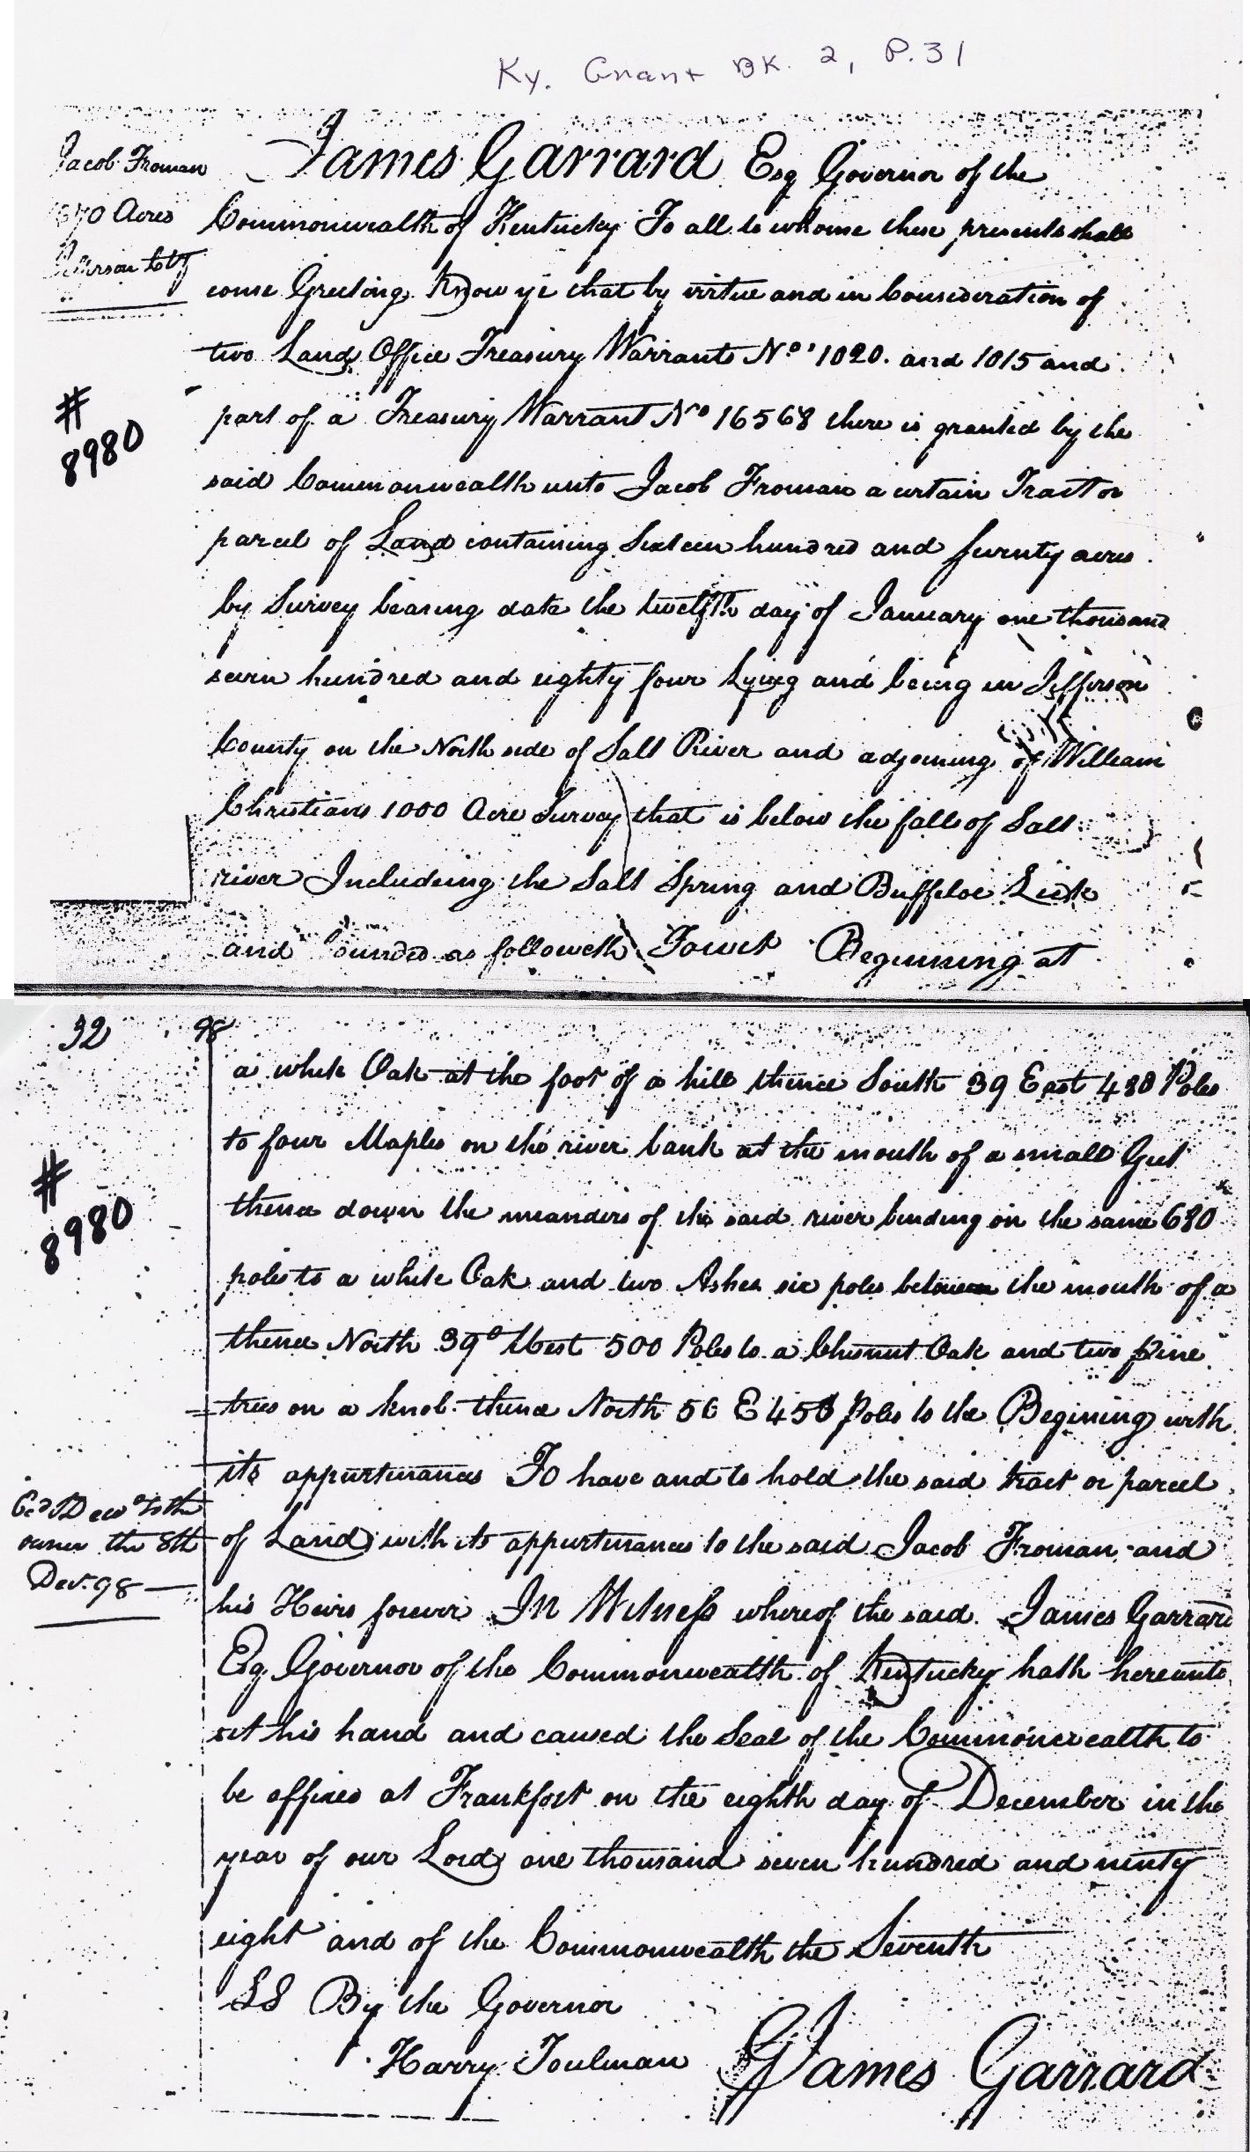 Ky. Grant BK. 2, P.31
Jacob Froman
1670 Acres
Jefferson Cty
#
8980
James Garrard Esq Governor of the
Commonwealth of Kentucky To all to whome these presents shall
come Greeting Know ye that by virtue and in Consideration of
two Land Office Treasury Warrants No 1020. and 1015 and
part of a Treasury Warrant No 16568 there is granted by the
said Commonwealth unto Jacob Froman a certain Tract or
parcel of Land containing Sixteen hundred and seventy acres
by Survey bearing date the twelfth day of January one thousand
seven hundred and eighty four Lying and being in Jefferson
County on the North side of Salt River and adjoining of William
Christians 1000 Acre Survey that is below the fall of Salt
river Including the Salt Spring and Buffeloe Lick
and bounded as followeth Towit Beginning at
32
98
#
8980
a white Oak at the foot of a hill thence South 39 East 480 Poles
to four Maples on the river bank at the mouth of a small Gut
thence down the meanders of the said river binding on the same 680
poles to a white Oak and two Ashes six poles between the mouth of a
thence North 39° West 500 Poles to a Chesnut Oak and two pine
trees on a knob thence North 56 E 458 poles to the Begining with
its appurtenances To have and to hold the said tract or parcel
of Land with its appurtenances to the said Jacob Froman and
his Heirs forever In Witness whereof the said James Garrard
Esq Governor of the Commonwealth of Kentucky hath hereunto
set his hand and caused the Seal of the Commonwealth to
be affixed at Frankfort on the eighth day of December in the
year of our Lord one thousand seven hundred and ninty
eight and of the Commonwealth the Seventh
owner the 8th
Decr 98
LS By the Governor
Harry Toulman
James Garrard